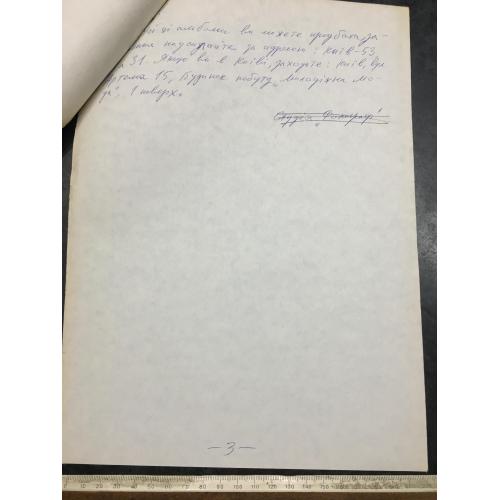 ці альбоми ви можете придбати, за-
надсилайте за адресою: Київ-53,
31. Якщо ви в Києві, заходьте: Київ, вул.
Артема 15, Будинок побуту „Молодіжна мо-
да", 1 поверх.
Студія „Фонограф"
—3—
0 10 20 30 40 50 60 70 80 90 100 110 120 130 140 150 160 170 180 190 200 210 220 230